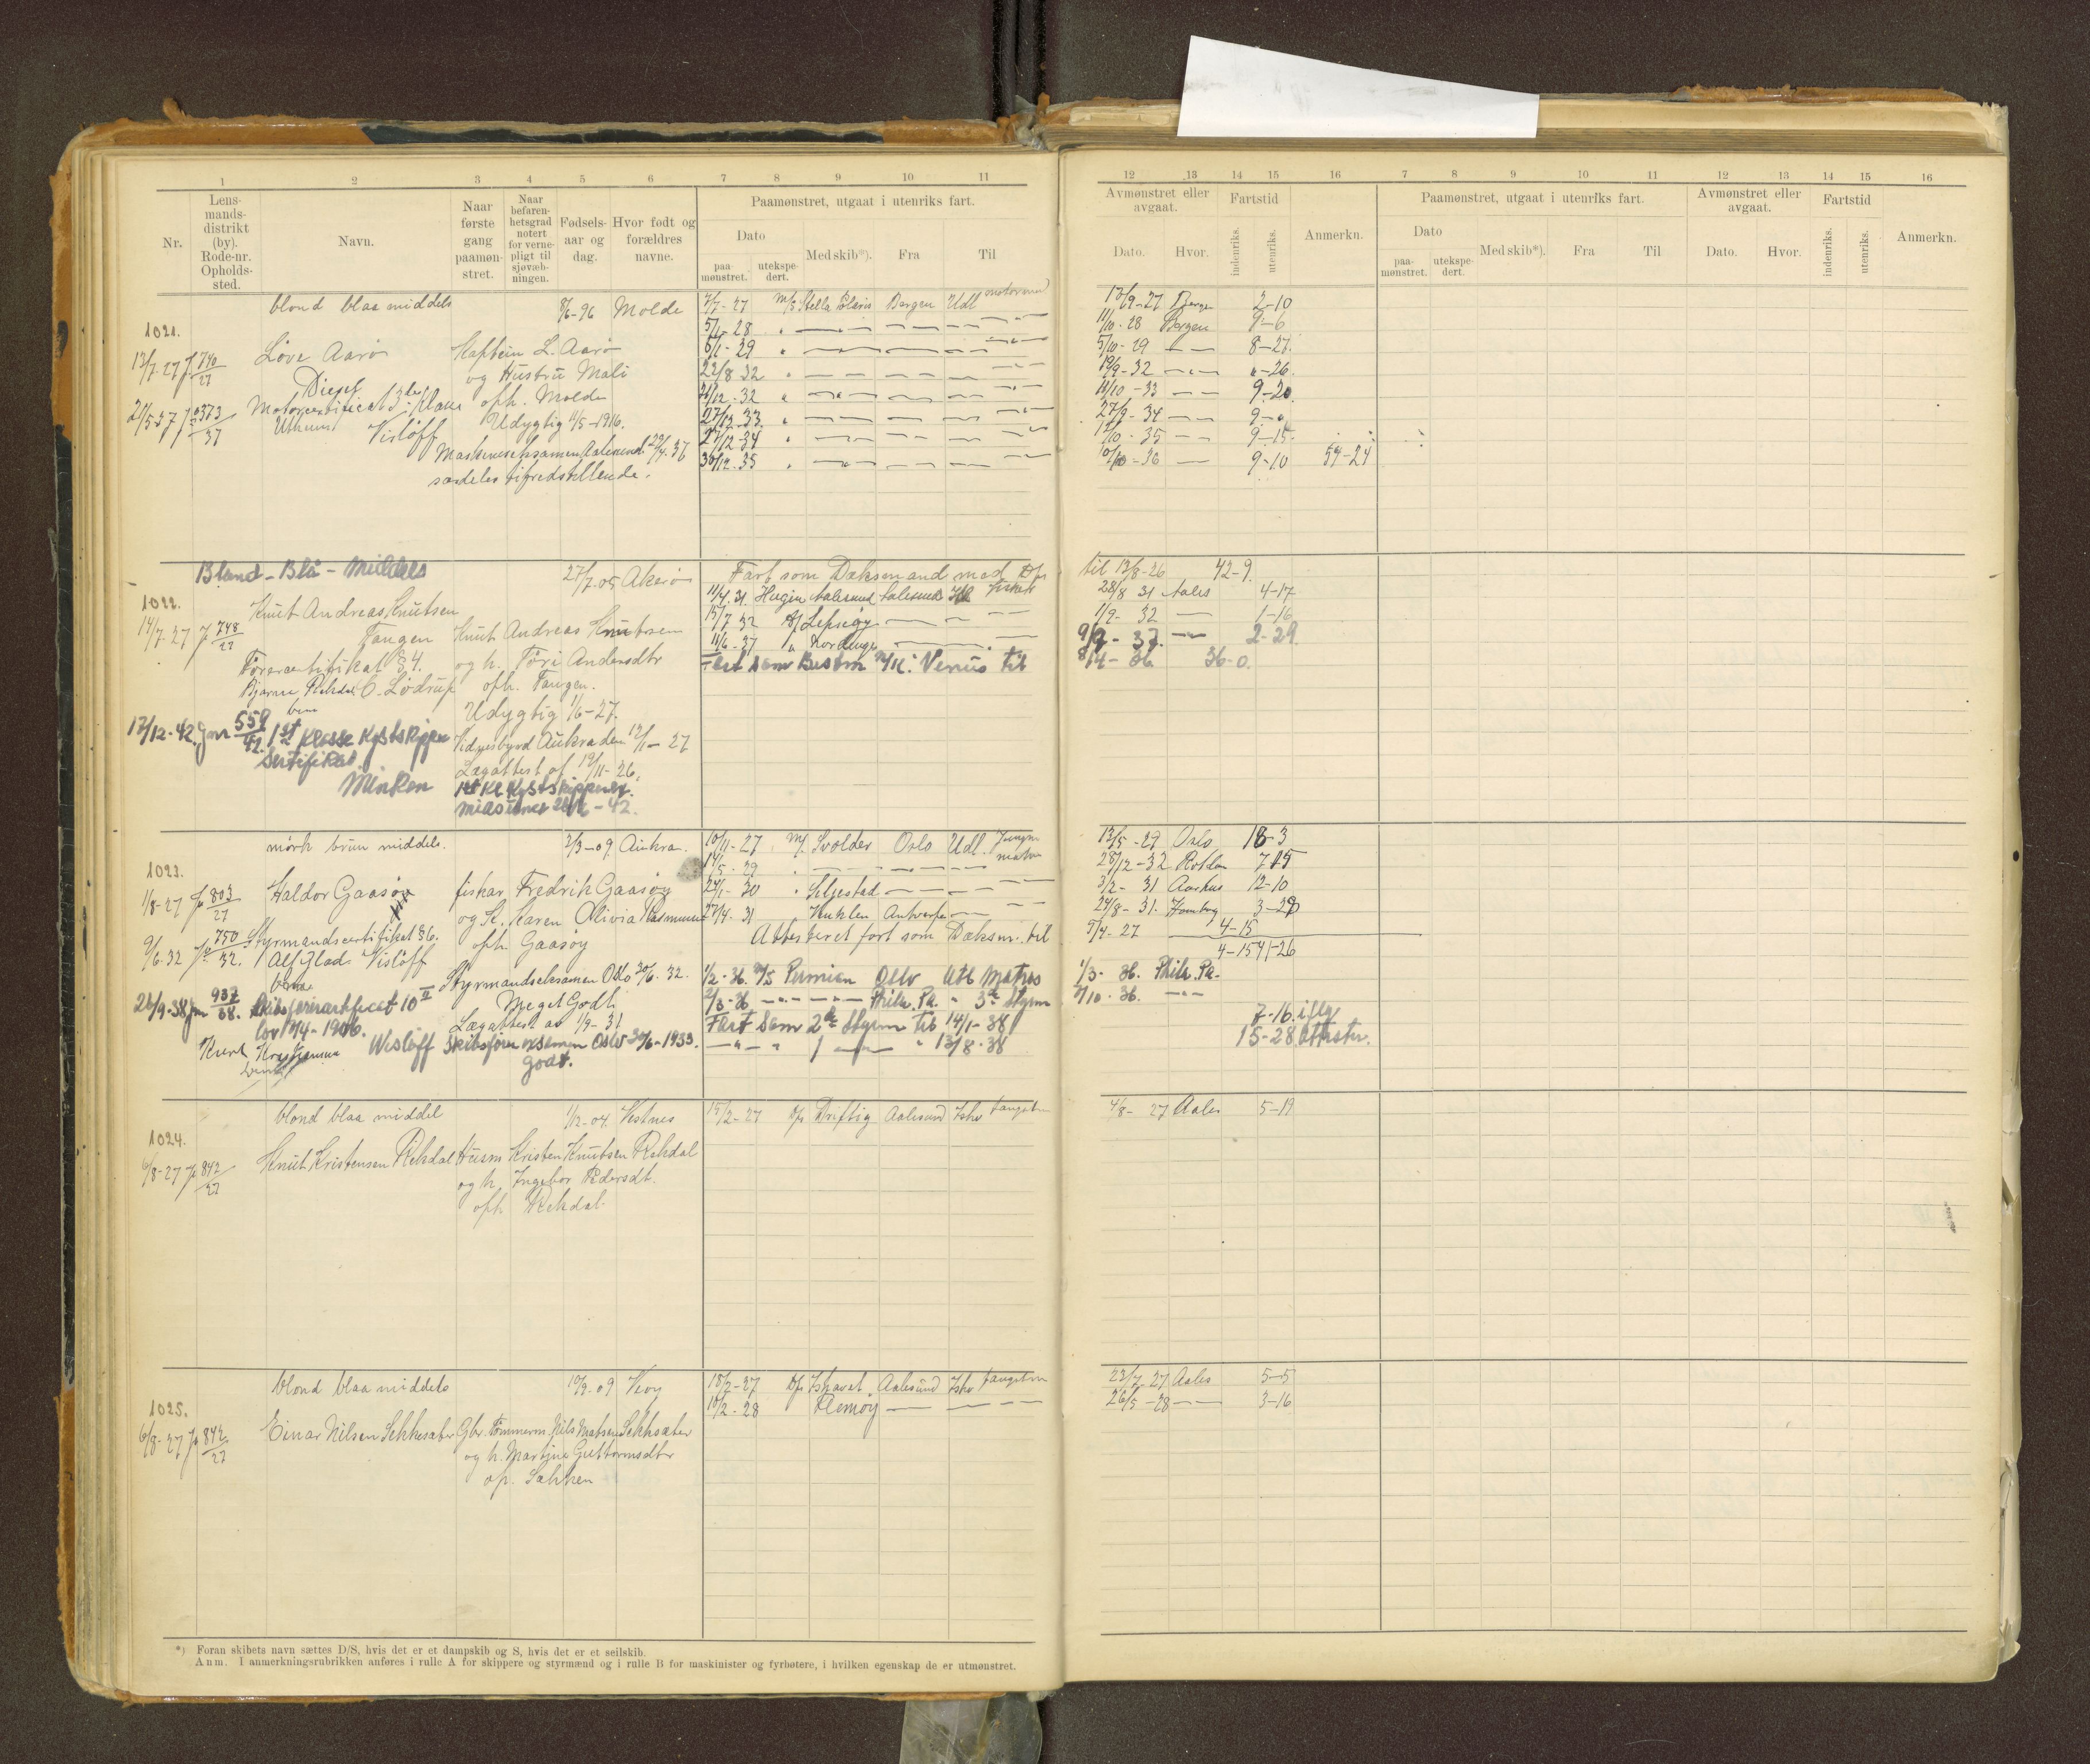 1 2 3 4 5 6 7 8 9 10 11
Nr.
Lens-
mands-
distrikt
(by).
Rode-nr.
Opholds-
sted.
Navn.
Naar
første
gang
paamøn-
stret.
Naar
befaren-
hetsgrad
notert
for verne-
pligt til
sjøvæb-
ningen.
Fødsels-
aar og
dag.
Hvor født og
forældres
navne.
Paamønstret, utgaat i utenriks fart.
Dato
paa-
mønstret.
utekspe-
dert.
Med skib*).
Fra
Til
12 13 14 15 16 7 8 9 10 11 12 13 14 15 16
Avmønstret eller
avgaat.
Dato.
Hvor.
Fartstid
indenriks.
utenriks.
Anmerkn.
Paamønstret, utgaat i utenriks fart.
Dato
paa-
mønstret.
utekspe-
dert.
Med skib*).
Fra
Til
Avmønstret eller
avgaat.
Dato.
Hvor.
Fartstid
indenriks.
utenriks.
Anmerkn.
1021.
blond blaa middels
8/6-96 Molde
13/7-27 J 740/27
Løve Aarø
Kaptein L. Aarø
og Hustru Mali
oph. Molde
Diesel
Motorcertificat 3die Klasse
21/5-37
Visløff
Udygtig 11/5-1916.
Maskinisteksamen Aalesund 29/4.37
særdeles tilfredstillende.
7/7-27 M/S Stella Polaris Bergen Udl motormd
5/1-28
6/1-29
23/8 32
27/12-33
27/12-34
30/12-35
13/9-27 Bergen 2-10
11/10-28 Bergen 9-6
5/10-29 8-27.
19/9-32 -26.
11/10-33 9-20
27/9-34
12/10-35 9-15
10/10-36 9-10 54-24
1022.
Blond - Blå - Middels
27/7.05 Akerø
14/7-27 J 748/27
Knut Andreas Knutsen
Tangen
Knut Andreas Knutsen
og h. Føri Andersdtr
oph. Tangen.
Førercertifikat § 4.
C. Lødrup
Udygtig 1/6-27.
Vidnesbyrd Aukra den 12/1-27
Lægattest af 19/11-26.
17/12-42. Jon 559/42. 1st Klasse Kystskipper
Sertifikat.
1st Kl Kystskipperex.
Fart som Dæksmand med D/s
11/4.31. Hugin Aalesund
15/7 32 Lepsøy
11/6-37 Nordhug
Fart som Bestm M/K. Venus til
til 13/8-26 42-9.
28/8 31 Aales 4-17
1/9-32 1-16
9/9-37. 2-29.
36-0.
1023.
mørk brun middels.
2/3-09 Aukra.
1/8-27 J 803/27
Haldor Gaasøy
fisker Fredrik Gaasøy
og h. Karen Olivia Rasmussen
oph Gaasøy
9/6.32 J 750/32.
Styrmandscertifikat § 6.
Visløff
Styrmandseksamen Oslo 20/6.32.
Meget Godt
Lægattest av 1/9-31
26/9-38 Jon 937/38.
Skibsførercertificat 10 II
lov 17/4-1906.
Wisløff
Skibsførereksamen Oslo 30/6-1933.
godt.
10/11-27 M/s Svolder Oslo Udl. Jungm
14/5-29 matros
24/1-30 Seljestad
27/4-31 Antwerpen
Attesteret fart som Dæksm. til
1/2-36. M/S Permian Oslo Utl Matros
2/3-36 Phila. Pa. 3de Styrm
Fart Som 2de Styrm til 14/1-38
13/8-38
13/5-29 Oslo 18-3
28/12-32 7-15
3/2-31 Aarhus 12-10
24/8-31.
5/4-27 4-15
4-15 41-26
1/3-36. Phila. Pa.
2/10-36.
7-16. iflg
15-28. attester.
1024.
blond blaa middel
1/2-04. Vestnes
6/8-27 J 842/27
Knut Kristensen Rekdal
Husm Kristen Knutsen Rekdal
og h. Ingebor Pedersdt.
oph Rekdal.
15/2-27 D/s Driftig Aalesund Ishv fangstm
4/8-27 Aales 5-19
1025.
blond blaa middels
10/9-09 Veøy
6/8-27 J 842/27
Einar Nilsen Sekkesæter
Gbr. Tømmerm. Nils Matsen Sekkesæter
og h. Martine Guttormsdtr
op. Sekken
18/2-27 D/s Ishavet Aalesund Ishv fangstm
10/2-28 Flemøy
23/7-27 Aales 5-5
26/5-28 3-16
*) Foran skibets navn sættes D/S, hvis det er et dampskib og S, hvis det er et seilskib.
Anm. I anmerkningsrubrikken anføres i rulle A for skippere og styrmænd og i rulle B for maskinister og fyrbøtere, i hvilken egenskap de er utmønstret.